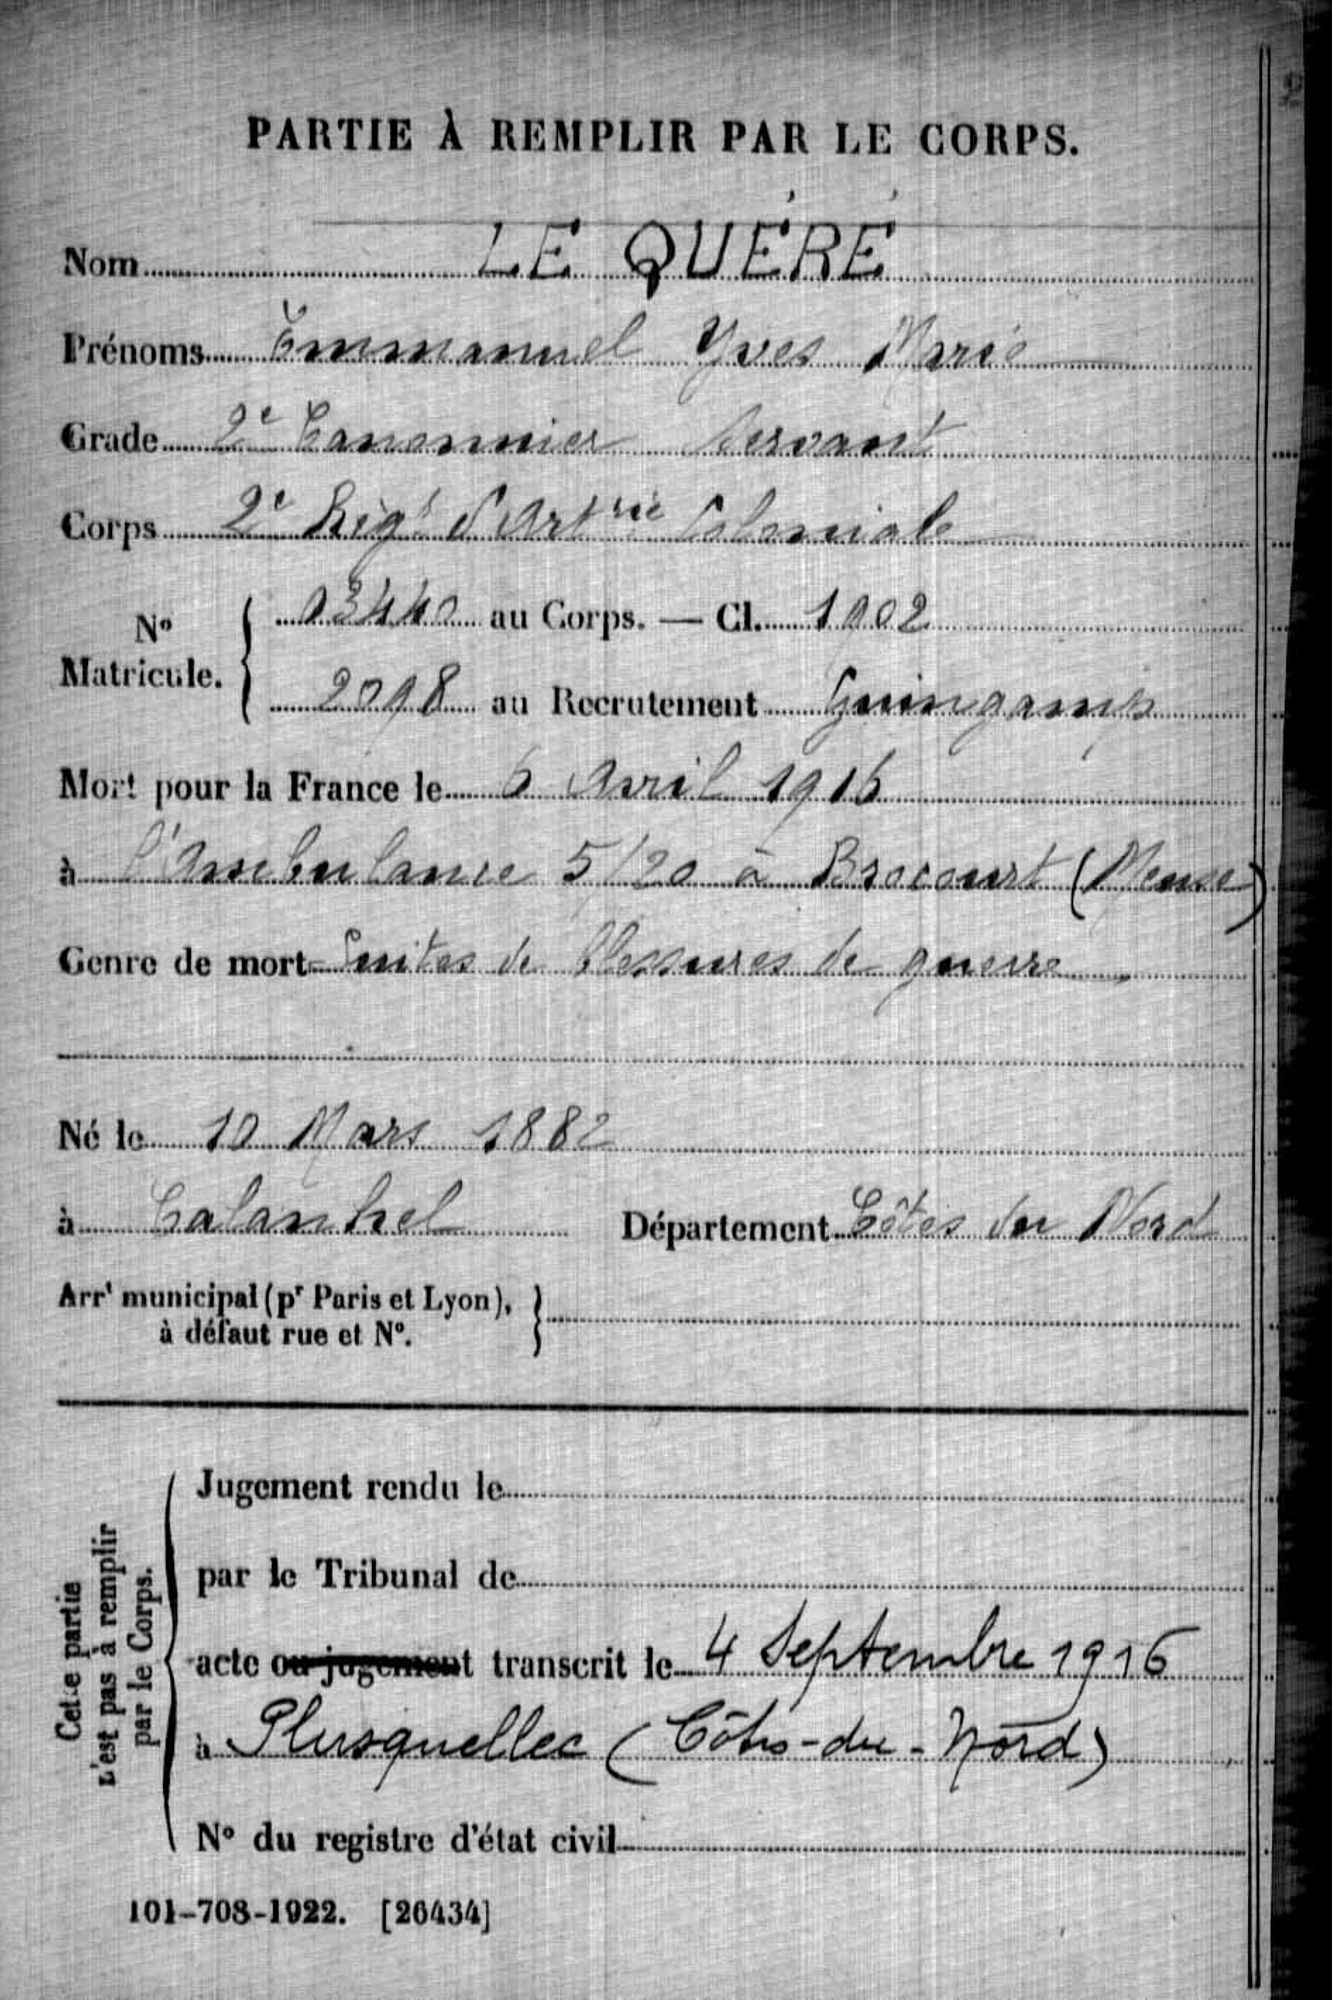 PARTIE À REMPLIR PAR LE CORPS.
Nom LE QUÉRÉ
Prénoms Emmanuel Yves Marie
Grade 2e Canonnier Servant
Corps 2e Régt d'Artrie Coloniale
No Matricule. { 03440 au Corps. — Cl. 1902
2098 au Recrutement Guingamp
Mort pour la France le 6 Avril 1916
à l'Ambulance 5/20 à Brocourt (Meuse)
Genre de mort Suites de blessures de guerre
Né le 10 Mars 1882
à Calanhel Département Côtes du Nord
Arrt municipal (pr Paris et Lyon), }
à défaut rue et No.
Cette partie
n'est pas à remplir
par le Corps.
Jugement rendu le
par le Tribunal de
acte ou jugement transcrit le 4 Septembre 1916
à Plusquellec (Côtes-du-Nord)
No du registre d'état civil
101-708-1922. [26434]